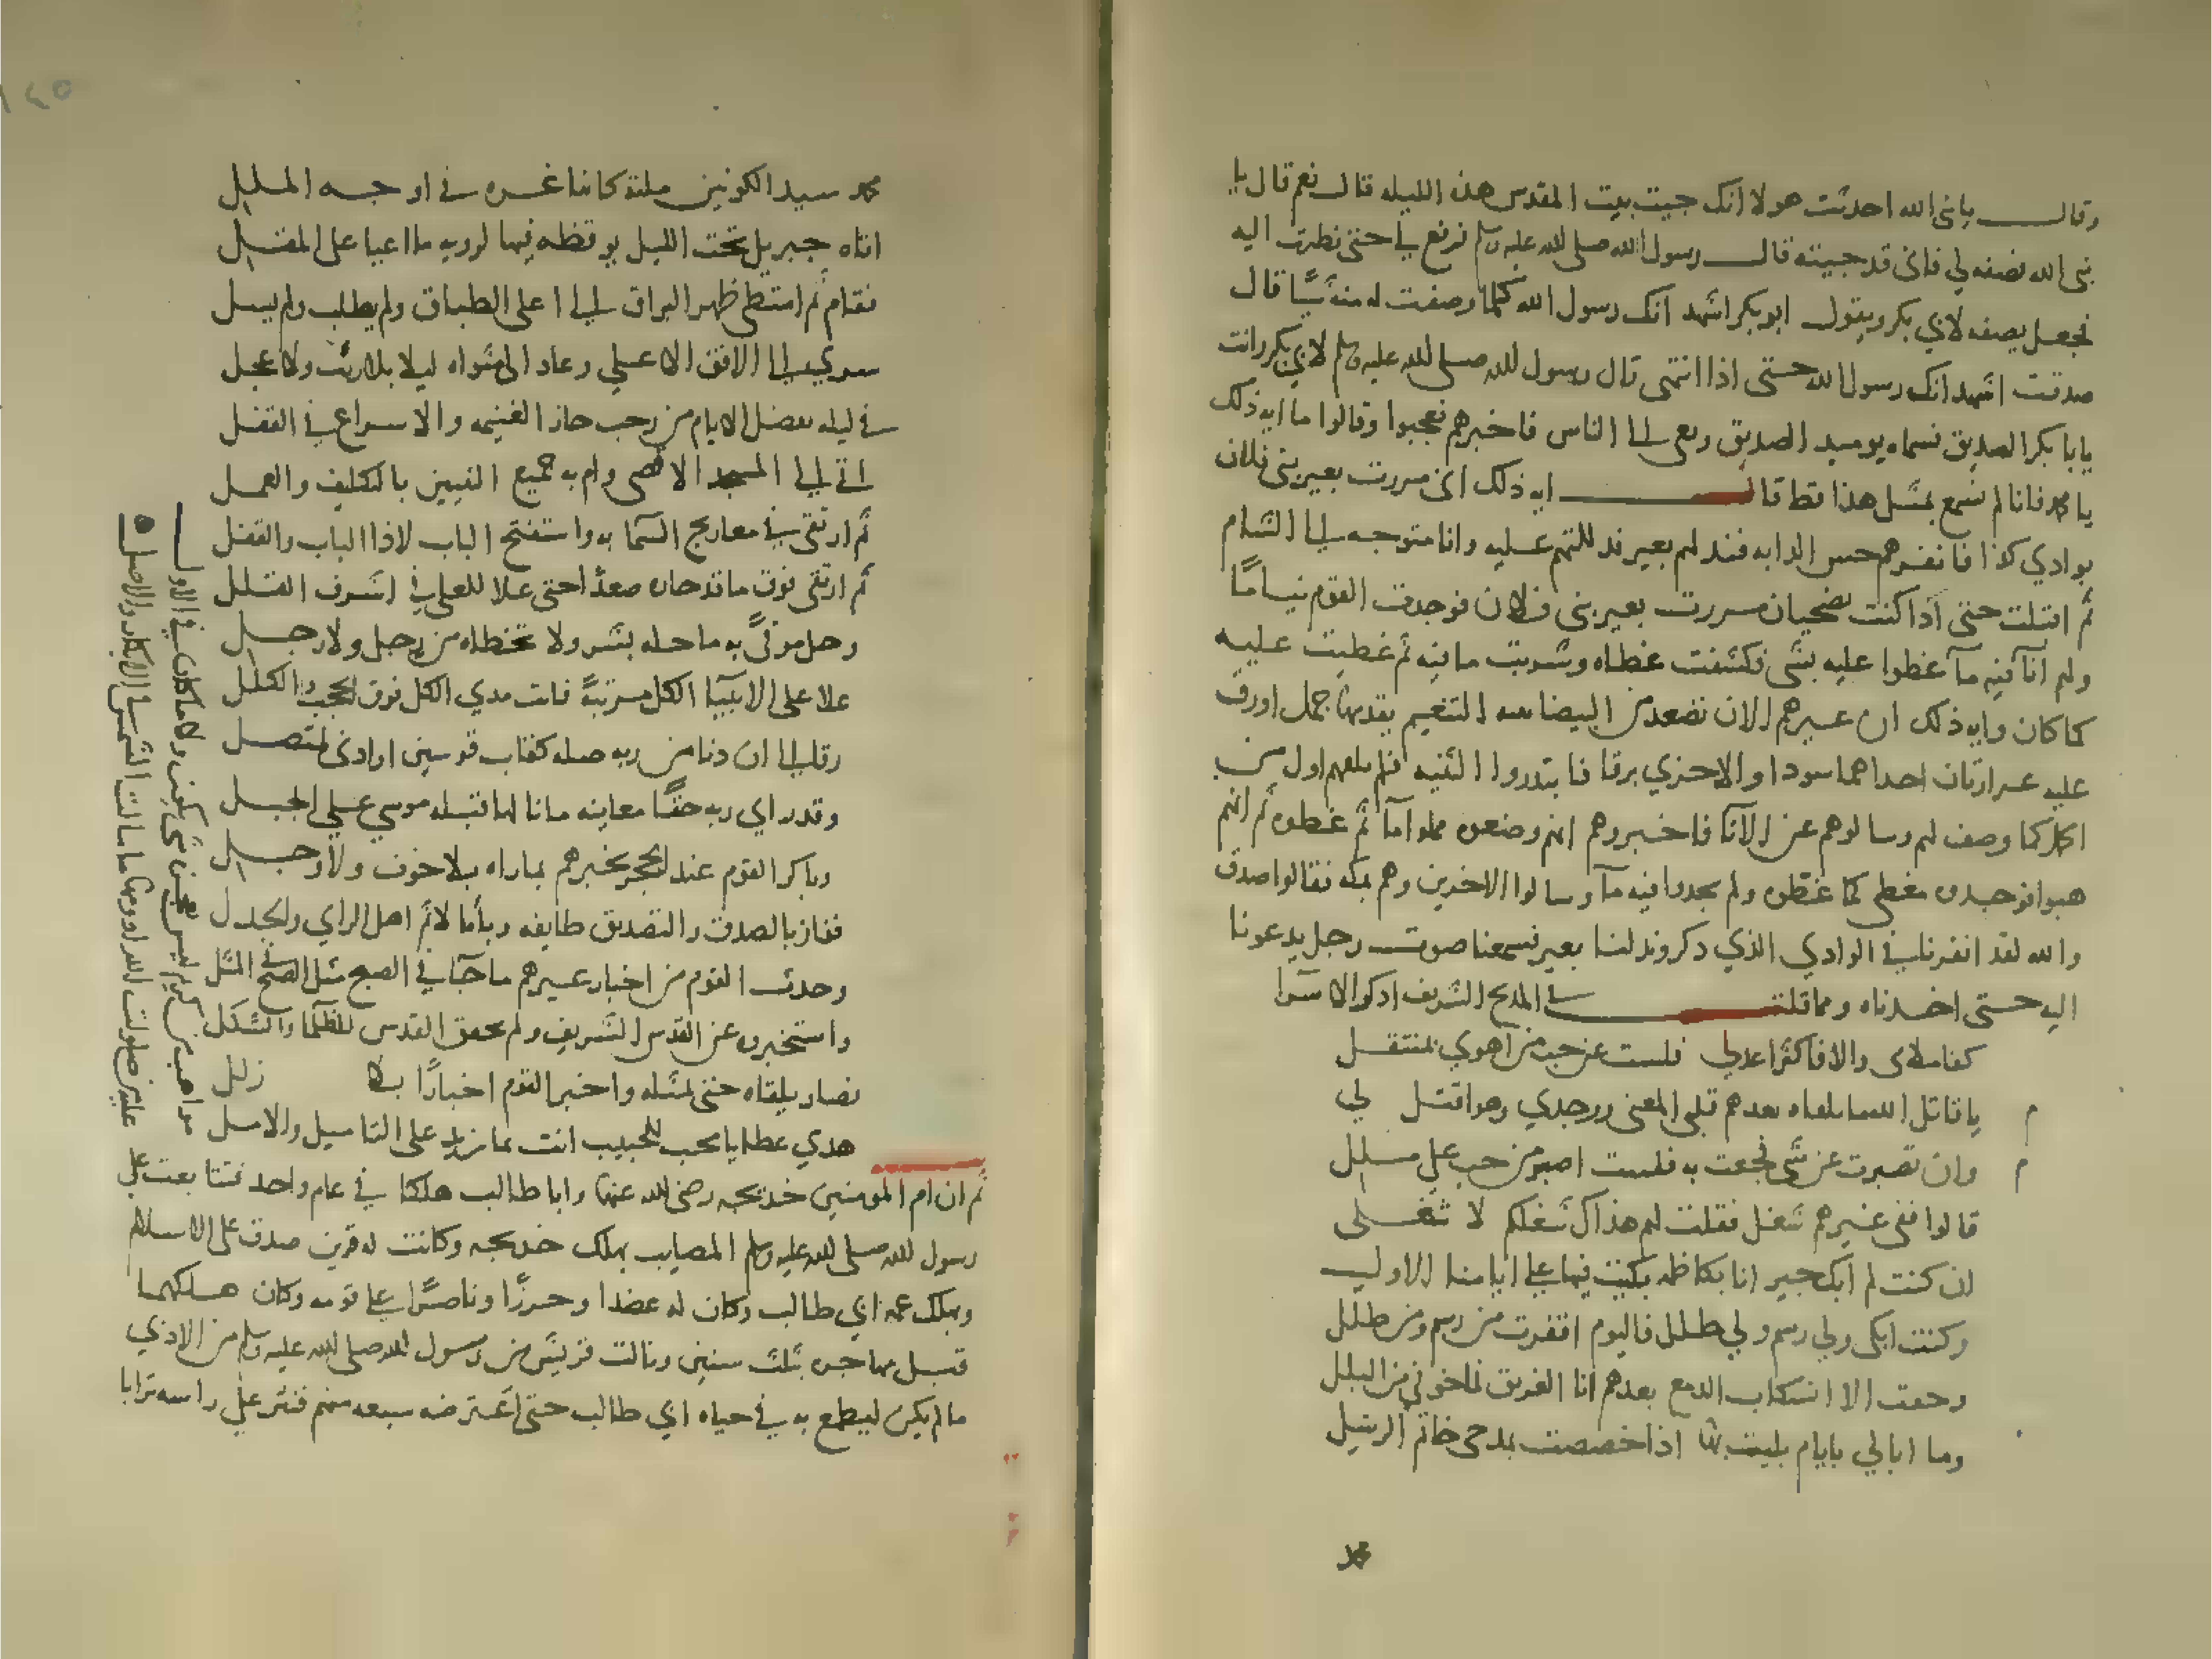 وقال يا نبي الله احدثت هولا انك جيت بيت المقدس هذه الليله قال نعم قال يا
نبي الله نصفه لي فاني قد جيته قال رسول الله صلى الله عليه وسلم فرفع لي حتى نظرت اليه
فجعل يصفه لابي بكر ويقول ابو بكر اشهد انك رسول الله كلما وصفت له منه شيًا قال
صدقت اشهد انك رسول الله حتى اذا انتهى قال رسول الله صلى الله عليه وسلم لابي بكر وانت
يا با بكر الصديق فسماه يوميد الصديق الى الناس فاخبرهم فعجبوا وقالوا ما ايه ذلك
يا محمد فانا لم نسمع بمثل هذا قط قال ايه ذلك اني مررت بعير بني فلان
بوادي كذا فانفرهم حس الدابه فند لهم بعير فدللتهم عليه وانا متوجه الى الشام
ثم اقبلت حتى اذا كنت بضجنان مررت بعير بني فلان فوجدت القوم نيامًا
ولهم انآ فيه مآ غطوا عليه بشي فكشفت غطاه وشربت ما فيه ثم غطيت عليه
كما كان وايه ذلك ان عيرهم الان تصعد من البيضا التنعيم يقدمها جمل اورق
عليه غرارتان احداهما سودا والاخري برقا فابتدروا الثنيه فلم يلقهم اول من
كما وصف لهم وسالوهم عن الانا فاخبروهم انهم وضعوه مملوا مآ ثم غطوه ثم انهم
هبوا فوجدوه مغطى كما غطوه ولم يجدوا فيه مآ وسالوا الاخرين وهم بمكه فقالوا صدق
والله لقد انفرنا في الوادي الذي ذكر وند لنا بعير فسمعنا صوت رجل يدعونا
اليه حتى اخذناه ومما قلت في المديح الشريف اذكر الاسرا
كفا ملامي والا فاكثرا عذلي فلست عن حب من اهوي بمنتقل
يا قاتل الله ما يلقاه بعدهم قلبي المعنى ووجدي وهو اقتل لي
وان تصبرت عن شي فجعت به فلست اصبر من حب علي ملل
قالوا ففي غيرهم شغل فقلت لهم هذاك شغلكم لا شغلي
ان كنت لم ابك جيرانا بكاظمه بكيت فيها على ايامنا الاول
وكنت ابكي ولي رسم ولي طلل فاليوم اقفرت من رسم ومن طلل
الا انسكاب الدمع بعدهم انا الغريق فما خوفي من البلل
وما ابالي بايام بليت بها اذا خصصت بمدحي خاتم الرسل
محمد
محمد سيد الكونين ملته كانها غره في اوجه الملل
اتاه جبريل تحت الليل يوقظه فيها لرويه ما اعيا على المقل
فقام ثم امتطى ظهر البراق الى اعلى الطباق ولم يطلب ولم يسل
سري الى الافق الاعلى وعاد الى مثواه ليلا بلا ريث ولا عجل
في ليله بعض الايام من رجب حاز الغنيمه والاسراع في القفل
اتى الى المسجد الاقصى وام به جميع النبيين بالتكليف والعمل
ثم ارتقى في معاريج السما به واستفتح الباب لاذا الباب والقفل
ثم ارتقى فوق ما قد صعدًا حتى علا للعلى في اشرف القلل
وحل مرقًى به ما حله بشر ولا تخطاه من رجل ولا رجل
علا على الانبيا الكل مرتبةً فات مدي الكل فوق الحجب والكلل
رقا الى ان دنا من ربه صله كقاب قوسين او ادنى لمتصل
وقد راي ربه حقًا معاينه ما نالها قبله موسي على الجبل
وباكر القوم عند الحجر يخبرهم بما راه بلا خوف ولا وجل
ففاز بالصدق والتصديق طايفه وبا ما لاثم اهل الراي والجدل
وحدث القوم من اخبار عيرهم ما جا في الصبح مثل الصبح في المثل
واستخبروه عن القدس الشريف ولم القدس للظلما والشكل
فصار يلقاه حتى لمثله واخبر القوم اخبارًا بلا زلل
هدي عطايا محب للحبيب اتت بما يزيد على التاميل والامل
ثم ان ام المومنين خديجه رضي الله عنها وابا طالب هلكا في عام واحد فتتابعت على
رسول الله صلى الله عليه وسلم المصايب بهلك خديجه وكانت له قرين صدق على الاسلام
وبهلك عمه ابي طالب وكان له عضدا وحرزًا وناصرًا على قومه وكان هلكهما
قبل مهاجره بثلث سنين ونالت قريش من رسول الله صلى الله عليه وسلم من الاذي
ما لم يكن ليطمع به في حياه ابي طالب حتى اعترضه سبعه منهم فنثر على راسه ترابا
مواهب من كريم ليس يعجزه شي يكون ولا ما كان في الاول
عليه من صلوات الله ادومها ما مالت الشمس في الابكار والاصل